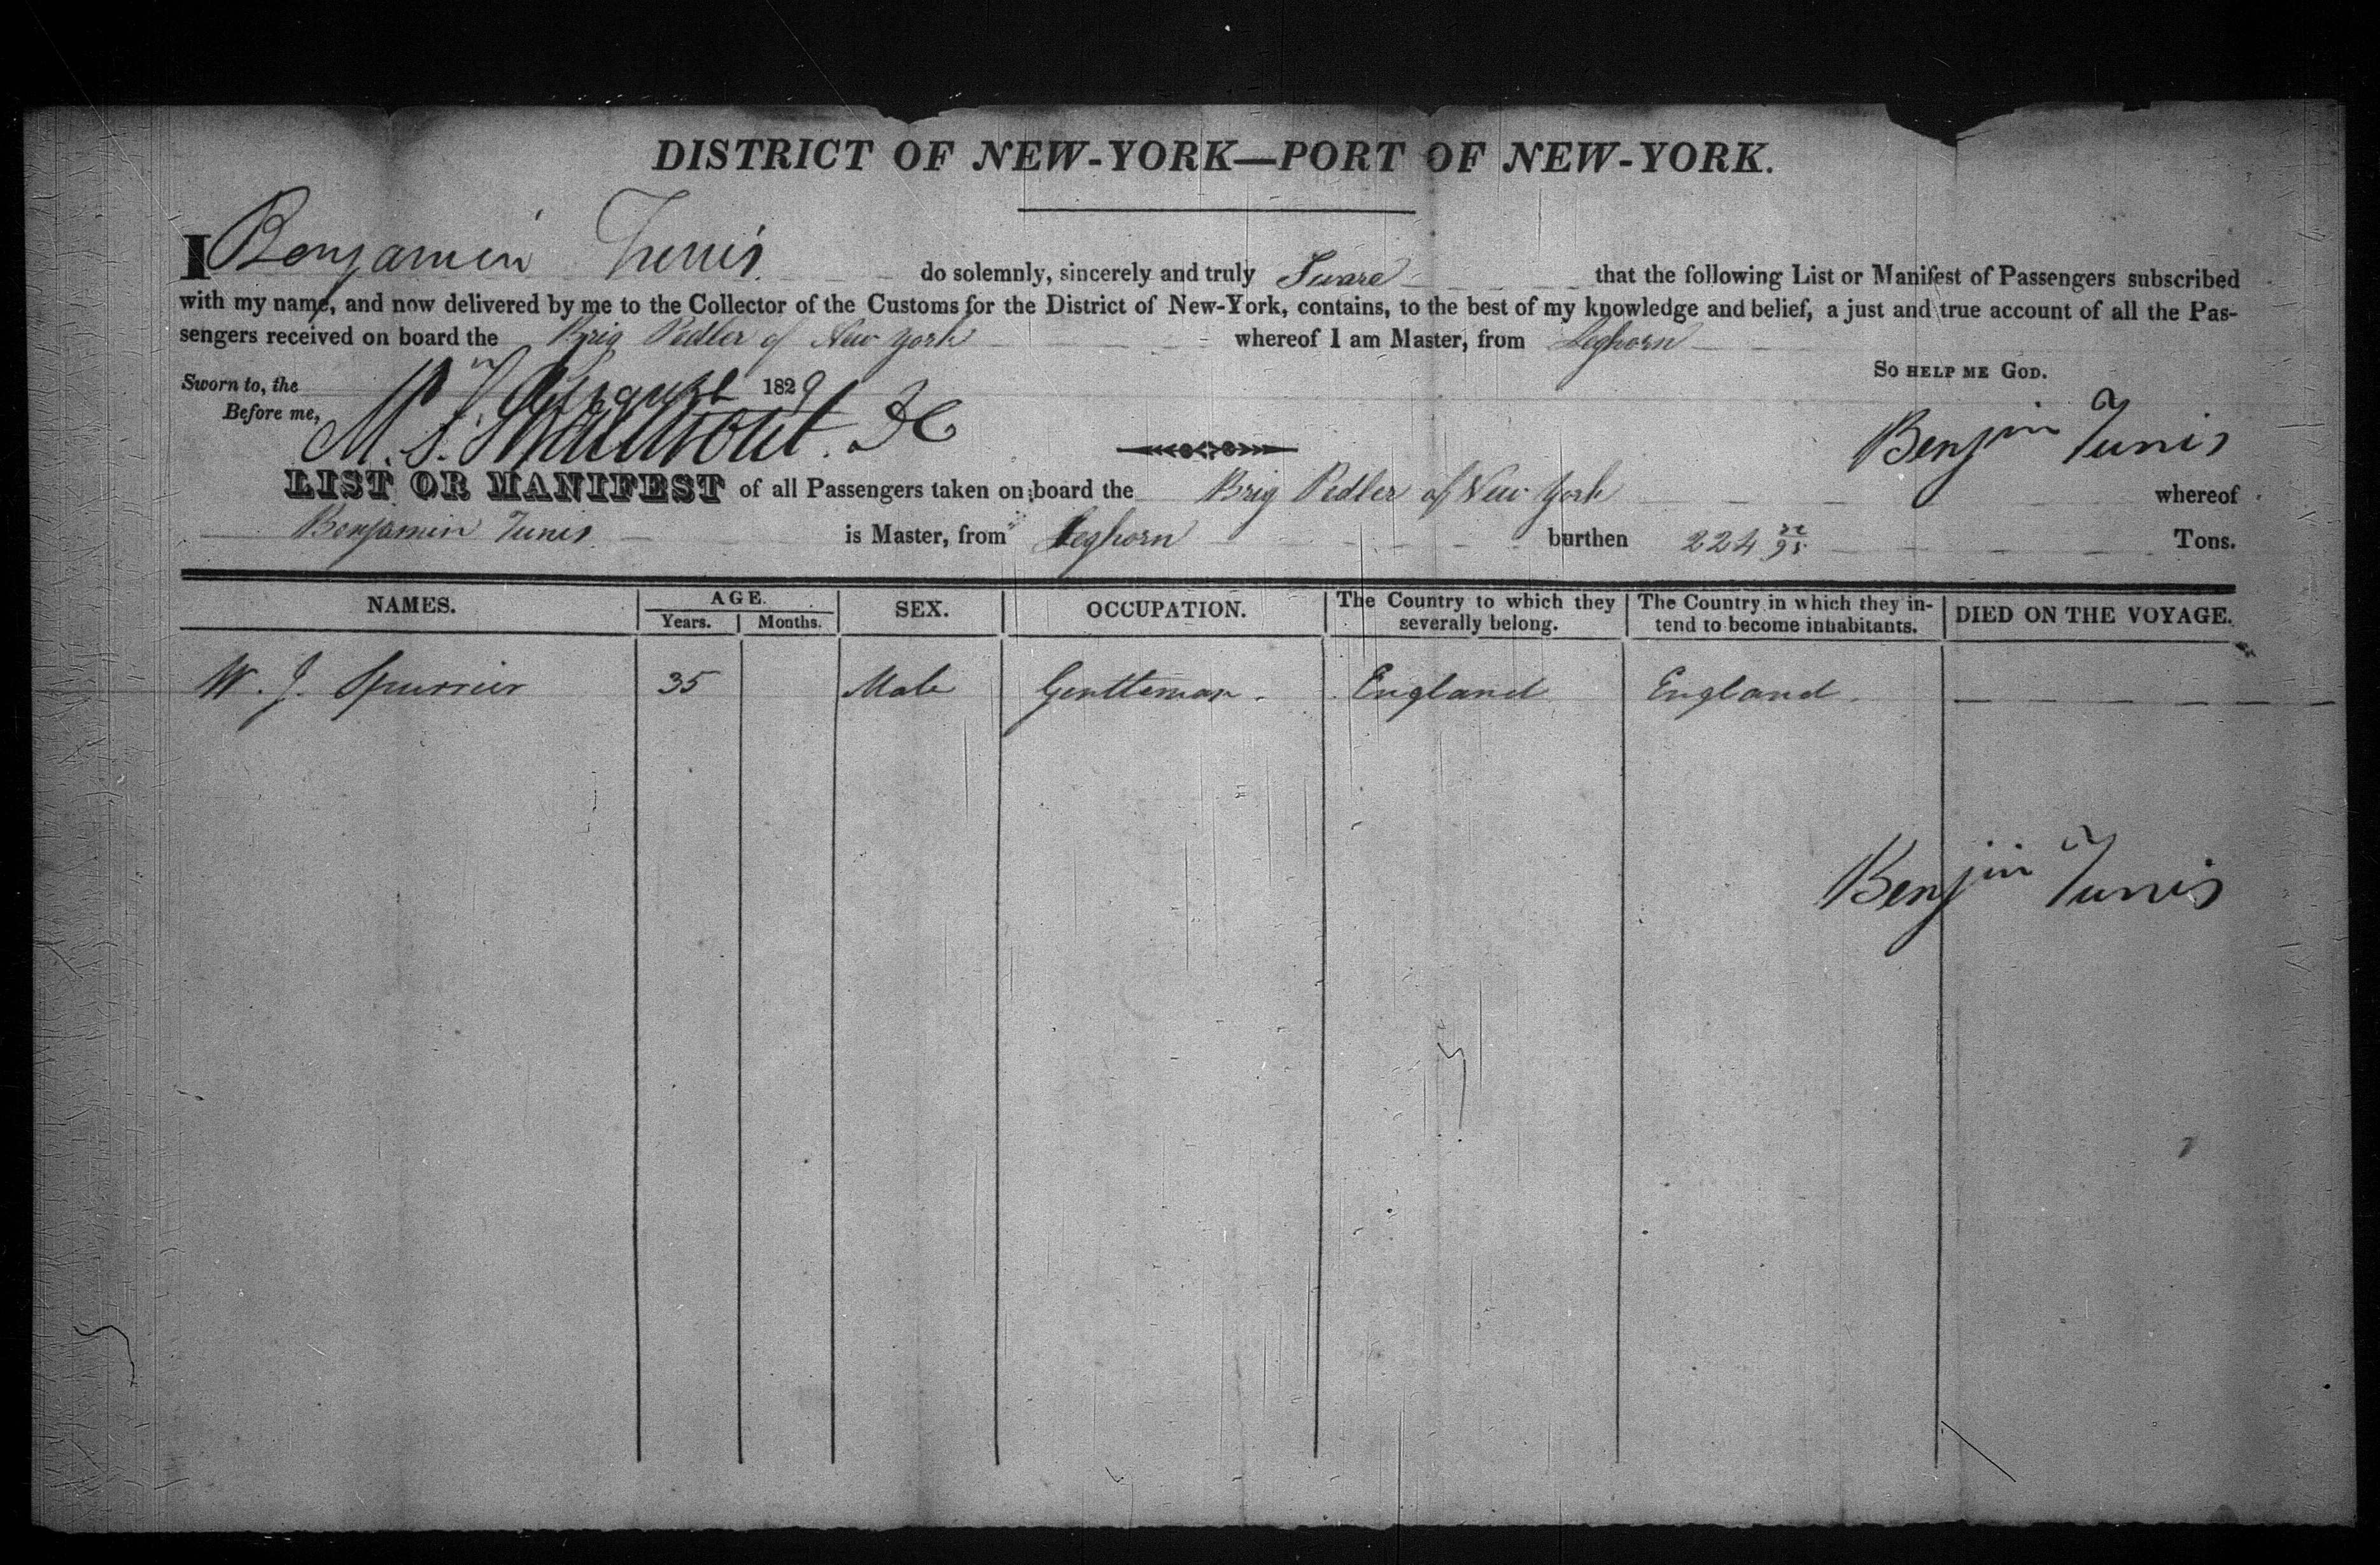 DISTRICT OF NEW-YORK—PORT OF NEW-YORK.
I Benjamin Tunis do solemnly, sincerely and truly Sware that the following List or Manifest of Passengers subscribed
with my name, and now delivered by me to the Collector of the Customs for the District of New-York, contains, to the best of my knowledge and belief, a just and true account of all the Pas-
sengers received on board the Brig Pedler of New York whereof I am Master, from Leghorn
So HELP ME GOD.
Sworn to, the August 1829
Before me, M. S.
Benjin Tunis
LIST OR MANIFEST of all Passengers taken on board the Brig Pedler of New York whereof
Benjamin Tunis is Master, from Leghorn burthen 224 Tons.
NAMES. AGE. Years. Months. SEX. OCCUPATION. The Country to which they severally belong. The Country in which they in-tend to become inhabitants. DIED ON THE VOYAGE.
W. J. Spurrier 35 Male Gentleman. England England
Benjin Tunis